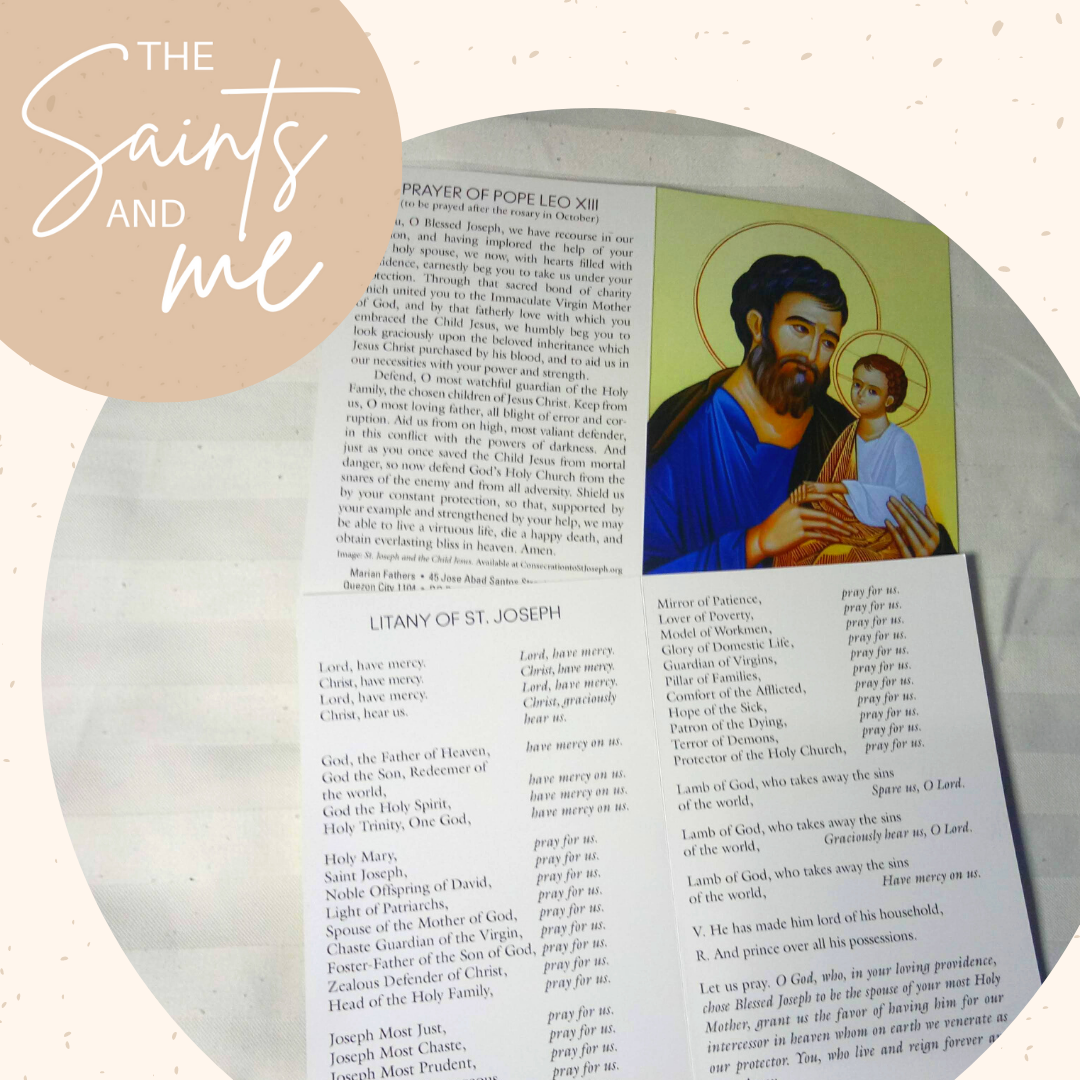 THE
Saints
AND
me
PRAYER OF POPE LEO XIII
(to be prayed after the rosary in October)
O Blessed Joseph, we have recourse in our
and having implored the help of your
holy spouse, we now, with hearts filled with
earnestly beg you to take us under your
Through that sacred bond of charity
which united you to the Immaculate Virgin Mother
of God, and by that fatherly love with which you
embraced the Child Jesus, we humbly beg you to
look graciously upon the beloved inheritance which
Jesus Christ purchased by his blood, and to aid us in
our necessities with your power and strength.
Defend, O most watchful guardian of the Holy
Family, the chosen children of Jesus Christ. Keep from
us, O most loving father, all blight of error and cor-
ruption. Aid us from on high, most valiant defender,
in this conflict with the powers of darkness. And
just as you once saved the Child Jesus from mortal
danger, so now defend God's Holy Church from the
snares of the enemy and from all adversity. Shield us
by your constant protection, so that, supported by
your example and strengthened by your help, we may
be able to live a virtuous life, die a happy death, and
obtain everlasting bliss in heaven. Amen.
Image: St. Joseph and the Child Jesus. Available at ConsecrationtoStJoseph.org
Marian Fathers • 45 Jose Abad Santos
Quezon City 1104 •
LITANY OF ST. JOSEPH
Lord, have mercy. Lord, have mercy.
Christ, have mercy. Christ, have mercy.
Lord, have mercy. Lord, have mercy.
Christ, hear us. Christ, graciously
hear us.
God, the Father of Heaven, have mercy on us.
God the Son, Redeemer of
the world, have mercy on us.
God the Holy Spirit, have mercy on us.
Holy Trinity, One God, have mercy on us.
Holy Mary, pray for us.
Saint Joseph, pray for us.
Noble Offspring of David, pray for us.
Light of Patriarchs, pray for us.
Spouse of the Mother of God, pray for us.
Chaste Guardian of the Virgin, pray for us.
Foster-Father of the Son of God, pray for us.
Zealous Defender of Christ, pray for us.
Head of the Holy Family, pray for us.
Joseph Most Just, pray for us.
Joseph Most Chaste, pray for us.
Joseph Most Prudent, pray for us.
pray for us.
Mirror of Patience, pray for us.
Lover of Poverty, pray for us.
Model of Workmen, pray for us.
Glory of Domestic Life, pray for us.
Guardian of Virgins, pray for us.
Pillar of Families, pray for us.
Comfort of the Afflicted, pray for us.
Hope of the Sick, pray for us.
Patron of the Dying, pray for us.
Terror of Demons, pray for us.
Protector of the Holy Church, pray for us.
Lamb of God, who takes away the sins
of the world, Spare us, O Lord.
Lamb of God, who takes away the sins
of the world, Graciously hear us, O Lord.
Lamb of God, who takes away the sins
of the world, Have mercy on us.
V. He has made him lord of his household,
R. And prince over all his possessions.
Let us pray. O God, who, in your loving providence,
chose Blessed Joseph to be the spouse of your most Holy
Mother, grant us the favor of having him for our
intercessor in heaven whom on earth we venerate as
our protector. You, who live and reign forever